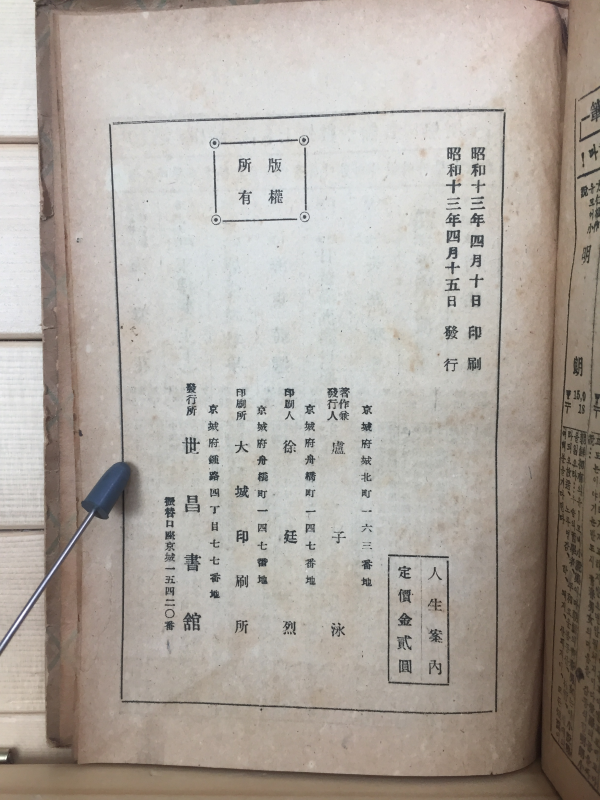 昭和十三年四月十日 印刷
昭和十三年四月十五日 發行
版權
所有
人生案內
定價金貳圓
京城府城北町一六三番地
著作兼
發行人 盧子泳
京城府舟橋町一四七番地
印刷人 徐廷烈
京城府舟橋町一四七番地
印刷所 大城印刷所
京城府鍾路四丁目七七番地
發行所 世昌書館
振替口座京城一五四二〇番
明
朗